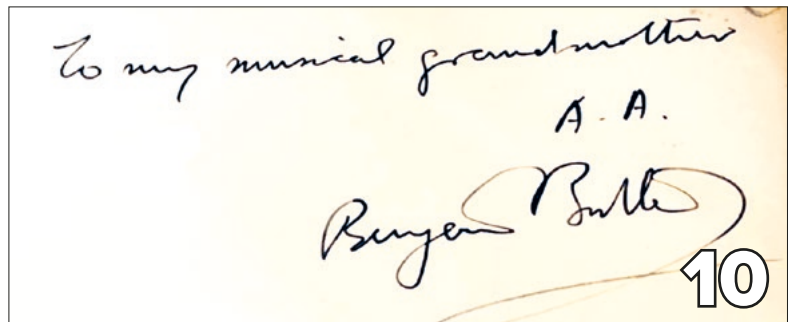 To my musical grandmother
A. A.
Benjamin Britten
10